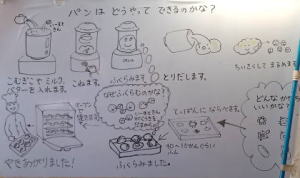 パンは どうやって できるのかな?
こむぎこや ミルク、
バターを 入れます。
こねます。
ふくらみます。
とりだします。
ちいさくして まるめます
なぜふくらむのかな?
てっぱんに ならべます。
どんなか
いいかな?
やきあがりました!
ふくらみました。